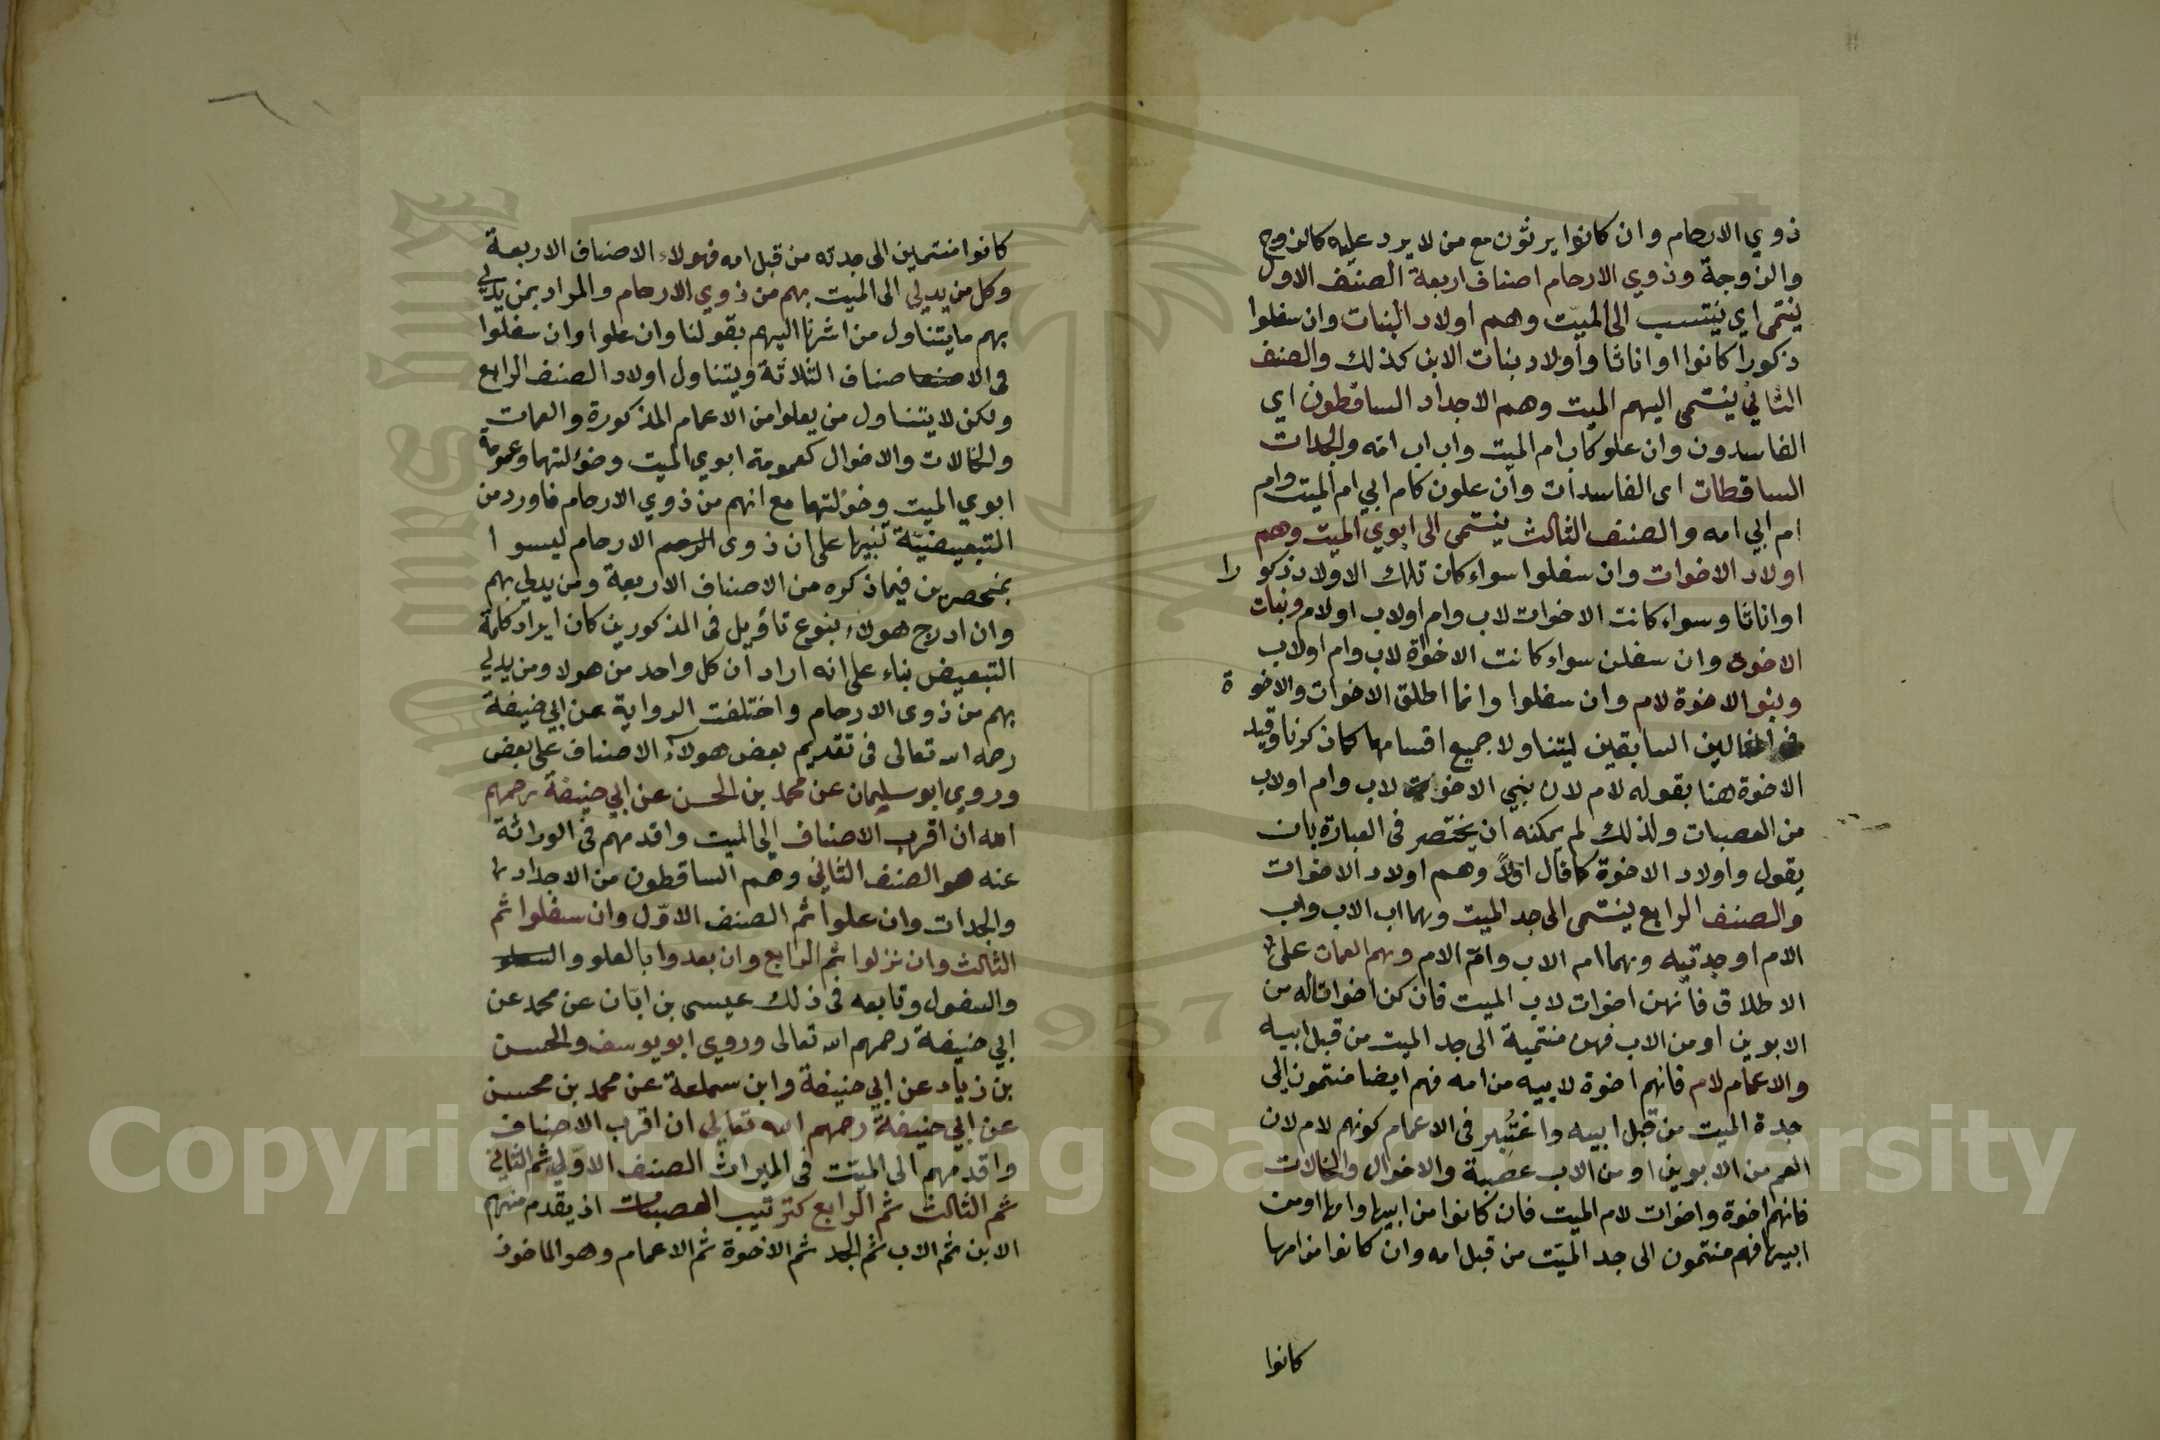 ذوي الارحام وان كانوا يرثون مع من لا يرد عليه كالزوج
والزوجة وذوي الارحام اصناف اربعة الصنف الاول
ينتمي اي ينتسب الى الميت وهم اولاد البنات وان سفلوا
ذكورا كانوا او اناثا واولاد بنات الابن كذلك والصنف
الثاني ينتمي اليهم الميت وهم الاجداد الساقطون اي
الفاسدون وان علو كاب ام الميت واب اب امه والجدات
الساقطات اى الفاسدات وان علون كام ابي ام الميت وام
ام ابي امه والصنف الثالث ينتمى الى ابوي الميت وهم
اولاد الاخوات وان سفلوا سواء كان تلك الاولاد ذكورا
او اناثا وسواء كانت الاخوات لاب وام او لاب او لام وبنات
الاخوة وان سفلن سواء كانت الاخوة لاب وام او لاب
وبنو الاخوة لام وان سفلوا وانما اطلق الاخوات والاخوة
السابقين ليتناولا جميع اقسامها كما ذكرنا وقيد
الاخوة هنا بقوله لام لان بني الاخوة لاب وام او لاب
من العصبات ولذلك لم يمكنه ان يختصر فى العبارة بان
يقول واولاد الاخوة كما قال اولاً وهم اولاد الاخوات
والصنف الرابع ينتمى الى جد الميت وهما اب الاب واب
الام او جدتيه وهما ام الاب وام الام وهم العمات على
الاطلاق فانهن اخوات لاب الميت فان كن اخواتا له من
الابوين او من الاب فهن منتمية الى جد الميت من قبل ابيه
والاعمام لام فانهم اخوة لابيه من امه فهم ايضا منتمون الى
جدة الميت من قبل ابيه واعتبر فى الاعمام كونهم لام لان
العم من الابوين او من الاب عصبة والاخوال والخالات
فانهم اخوة واخوات لام الميت فان كانوا من ابيها وامها او من
ابيها فهم منتمون الى جد الميت من قبل امه وان كانوا من امها
كانوا
كانوا منتمين الى جدته من قبل امه فهولاء الاصناف الاربعة
وكل من يدلي الى الميت بهم من ذوي الارحام والمراد بمن يدلي
بهم ما يتناول من اشرنا اليهم بقولنا وان علوا وان سفلوا
فى الاصناف الثلاثة ويتناول اولاد الصنف الرابع
ولكن لا يتناول من يعلوا من الاعمام المذكورة والعمات
والخالات والاخوال كعمومة ابوي الميت وخؤلتهما وعمومة
ابوي الميت وخؤلتهما مع انهم من ذوي الارحام فاورد من
التبعيضيّة تنبيها على ان ذوى الرحم الارحام ليسوا
بمنحصرين فيما ذكره من الاصناف الاربعة ومن يدلي بهم
وان ادرج هولاء بنوع تأويل فى المذكورين كان ايراد كلمة
التبعيض بناء على انه اراد ان كل واحد من هولا ومن يدلي
بهم من ذوى الارحام واختلفت الرواية عن ابي حنيفة
رحمه الله تعالى فى تقديم بعض هولآء الاصناف على بعض
وروي ابو سليمان عن محمد بن الحسن عن ابي حنيفة رحمهم
الله ان اقرب الاصناف الى الميت واقدمهم فى الوراثة
عنه هو الصنف الثاني وهم الساقطون من الاجداد
والجدات وان علوا ثم الصنف الاوّل وان سفلوا ثم
الثالث وان نزلوا ثم الرابع وان بعدوا بالعلو
والسفول وتابعه فى ذلك عيسى بن ابان عن محمد عن
ابي حنيفة رحمهم الله تعالى وروي ابو يوسف والحسن
بن زياد عن ابي حنيفة وابن سماعة عن محمد بن محسن
عن ابي حنيفة رحمهم الله تعالى ان اقرب الاصناف
واقدمهم الى الميّت فى الميراث الصنف الاوّل ثم الثاني
ثم الثالث ثم الرابع كترتيب العصبات اذ يقدم منهم
الابن ثم الاب ثم الجد ثم الاخوة ثم الاعمام وهو الماخوذ
1957
Copyright © King Saud University